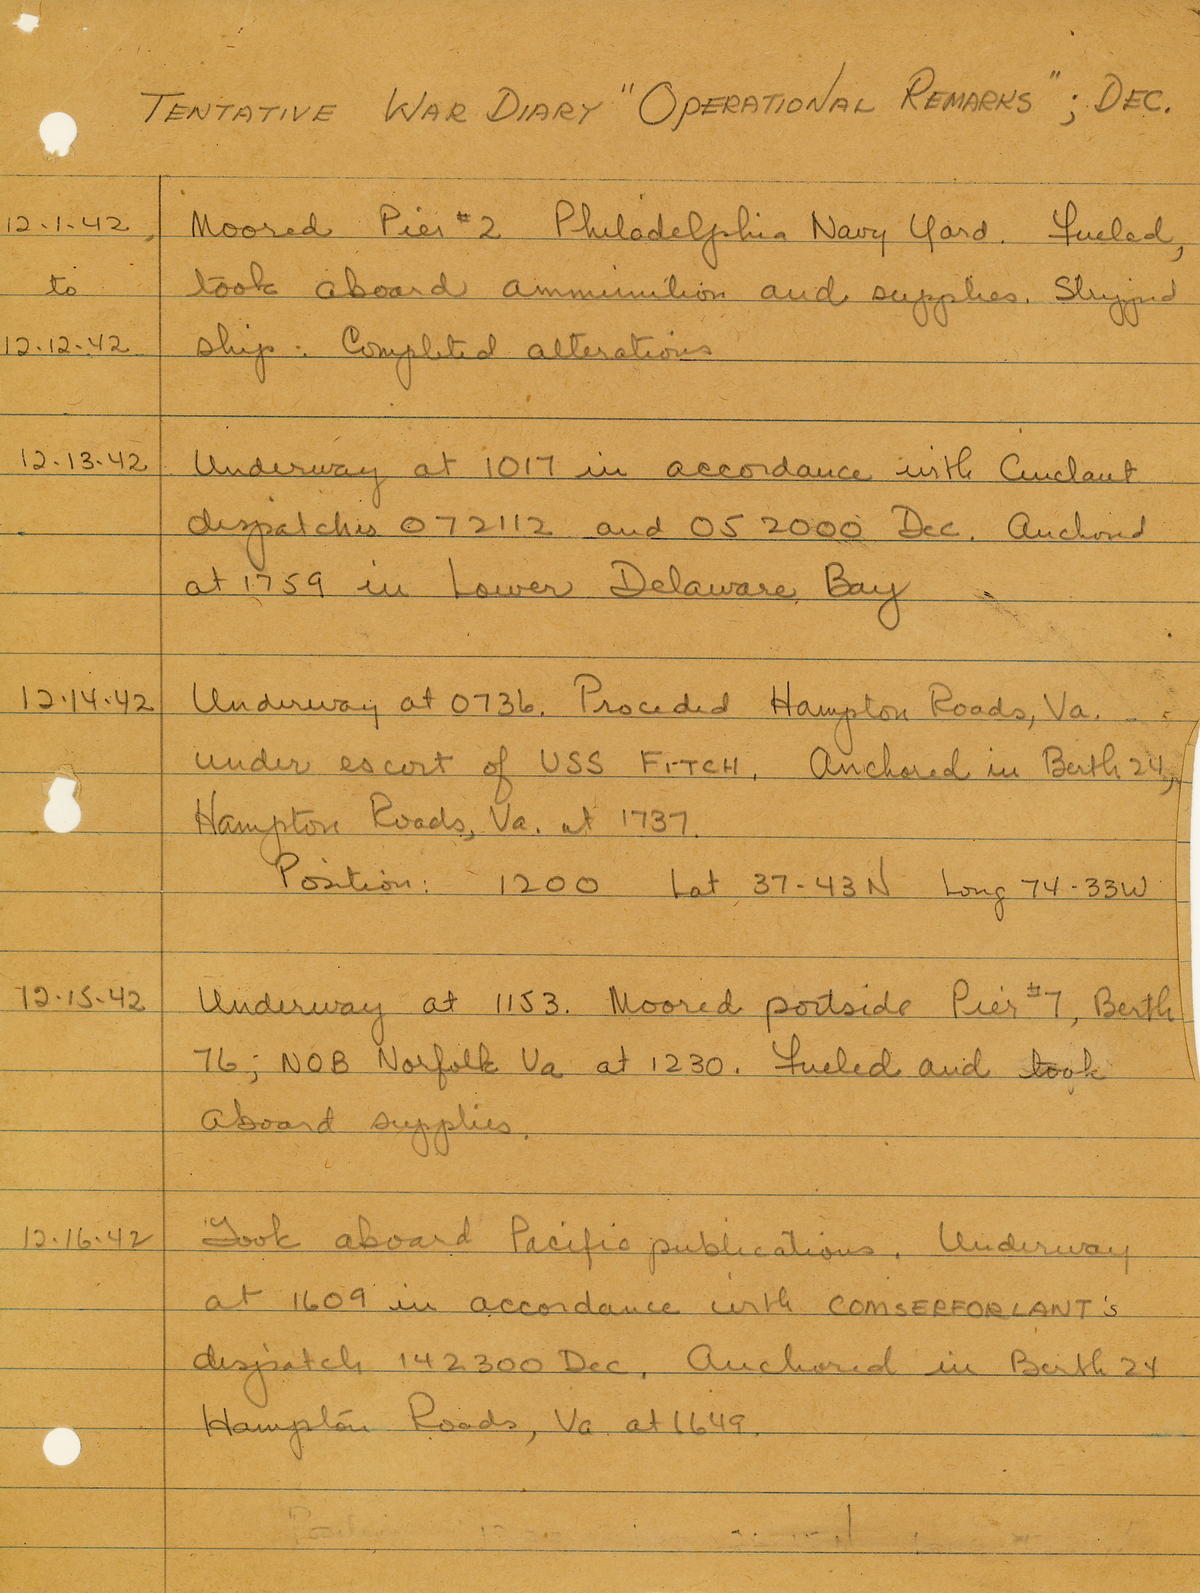 TENTATIVE WAR DIARY "OPERATIONAL REMARKS"; DEC.
12.1.42 Moored Pier #2 Philadelphia Navy Yard. Fueled,
to took aboard ammunition and supplies. Stripped
12.12.42 ship. Completed alterations
12.13.42 Underway at 1017 in accordance with Cinclant
dispatches 072112 and 052000 Dec. Anchored
at 1759 in Lower Delaware Bay
12.14.42 Underway at 0736. Proceded Hampton Roads, Va.
under escort of USS FITCH. Anchored in Berth 24,
Hampton Roads, Va. at 1737.
Position: 1200 Lat 37-43N Long 74-33W
12.15.42 Underway at 1153. Moored portside Pier #7, Berth
76; NOB Norfolk Va at 1230. Fueled and took
aboard supplies.
12.16.42 Took aboard Pacific publications. Underway
at 1609 in accordance with COMSERFORLANT's
dispatch 142300 Dec. Anchored in Berth 24
Hampton Roads, Va. at 1649.